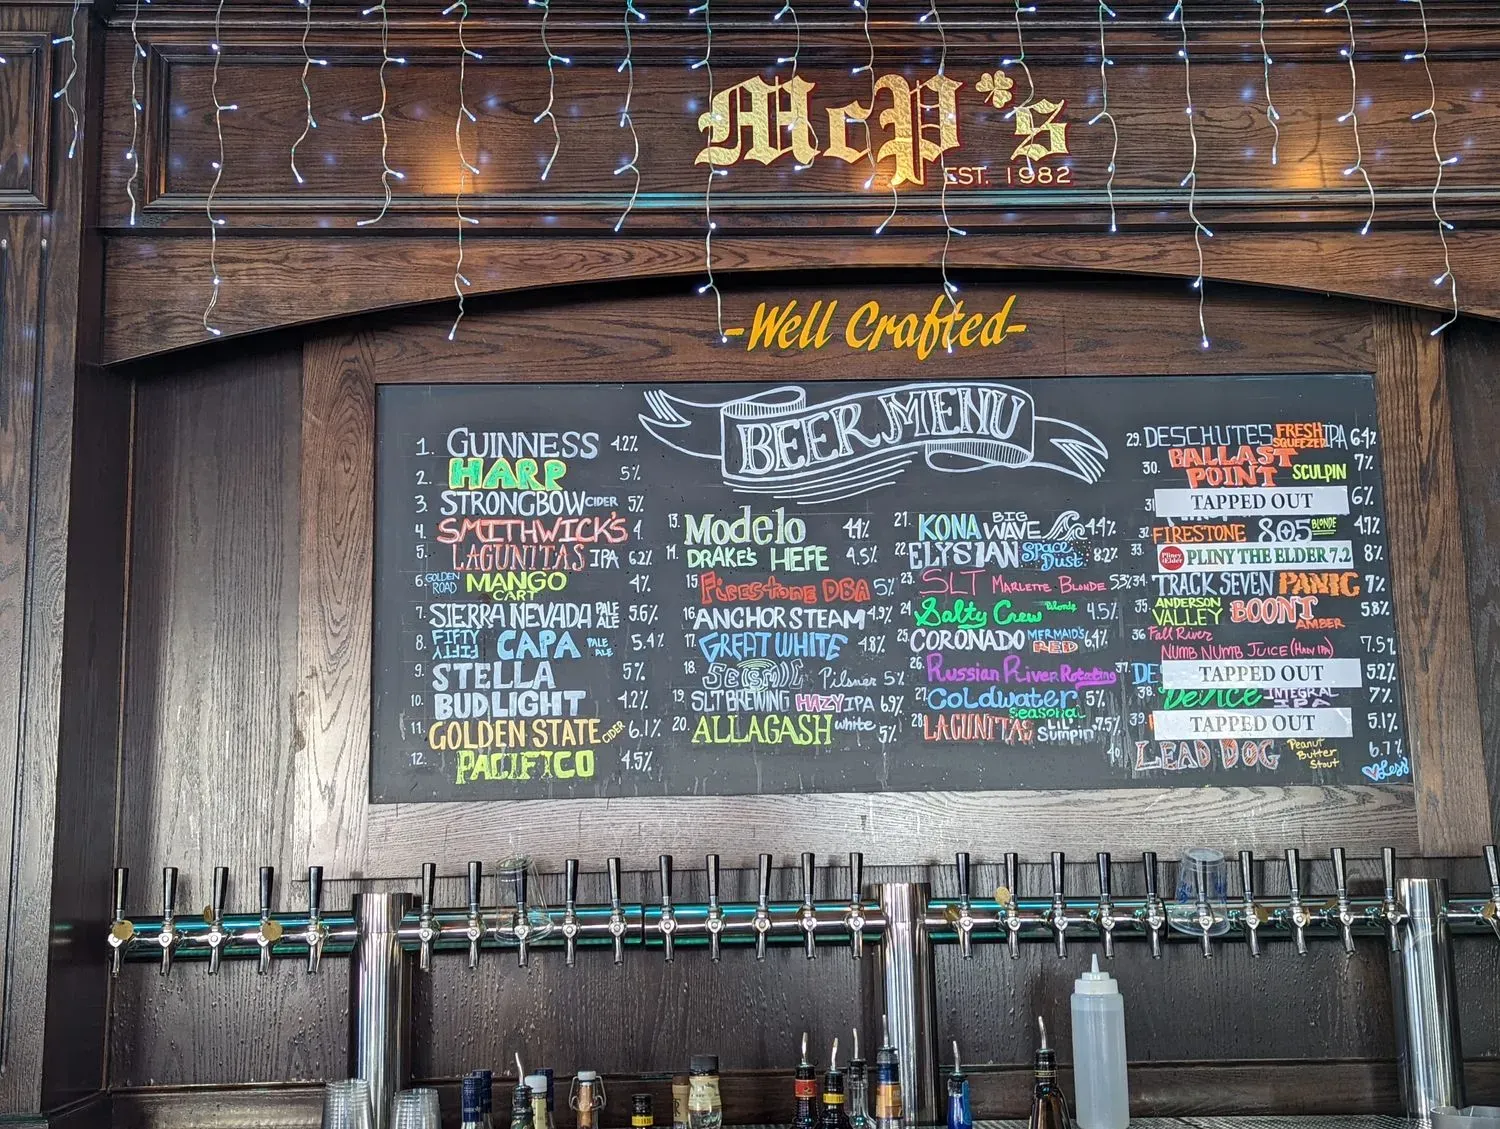 McP's
EST. 1982
-Well Crafted-
BEER MENU
1. GUINNESS 4.2%
2. HARP 5%
3. STRONGBOW CIDER 5%
4. SMITHWICK'S 4
5. LAGUNITAS IPA 6.2%
6. GOLDEN ROAD MANGO CART 4%
7. SIERRA NEVADA PALE ALE 5.6%
8. FIFTY FIFTY CAPA PALE ALE 5.4%
9. STELLA 5%
10. BUDLIGHT 4.2%
11. GOLDEN STATE CIDER 6.1%
12. PACIFICO 4.5%
13. Modelo 4.4%
14. DRAKE'S HEFE 4.5%
15 Firestone DBA 5%
16 ANCHOR STEAM 4.9%
17. GREAT WHITE 4.8%
18. SEISMIC Pilsner 5%
19. SLT BREWING HAZY IPA 6.9%
20. ALLAGASH white 5%
21. KONA BIG WAVE 4.4%
22. ELYSIAN Space Dust 8.2%
23. SLT MARLETTE BLONDE 5.3%
24 Salty Crew Blonde 4.5%
25. CORONADO MERMAID'S RED 6.4%
26. Russian River Rotating
27. Coldwater Seasonal 5%
28 LAGUNITAS LIL' Sumpin' 7.5%
29. DESCHUTES FRESH SQUEEZED IPA 6.4%
30. BALLAST POINT SCULPIN 7%
31 TAPPED OUT 6%
32 FIRESTONE 805 BLONDE 4.7%
33. Pliny the Elder PLINY THE ELDER 7.2 8%
34. TRACK SEVEN PANIC 7%
35. ANDERSON VALLEY BOONT AMBER 5.8%
36 Fall River NUMB NUMB JUICE (HAZY IPA) 7.5%
37. DE TAPPED OUT 5.2%
38. DEVICE INTEGRAL IPA 7%
39. TAPPED OUT 5.1%
40. LEAD DOG Peanut Butter Stout 6.7%